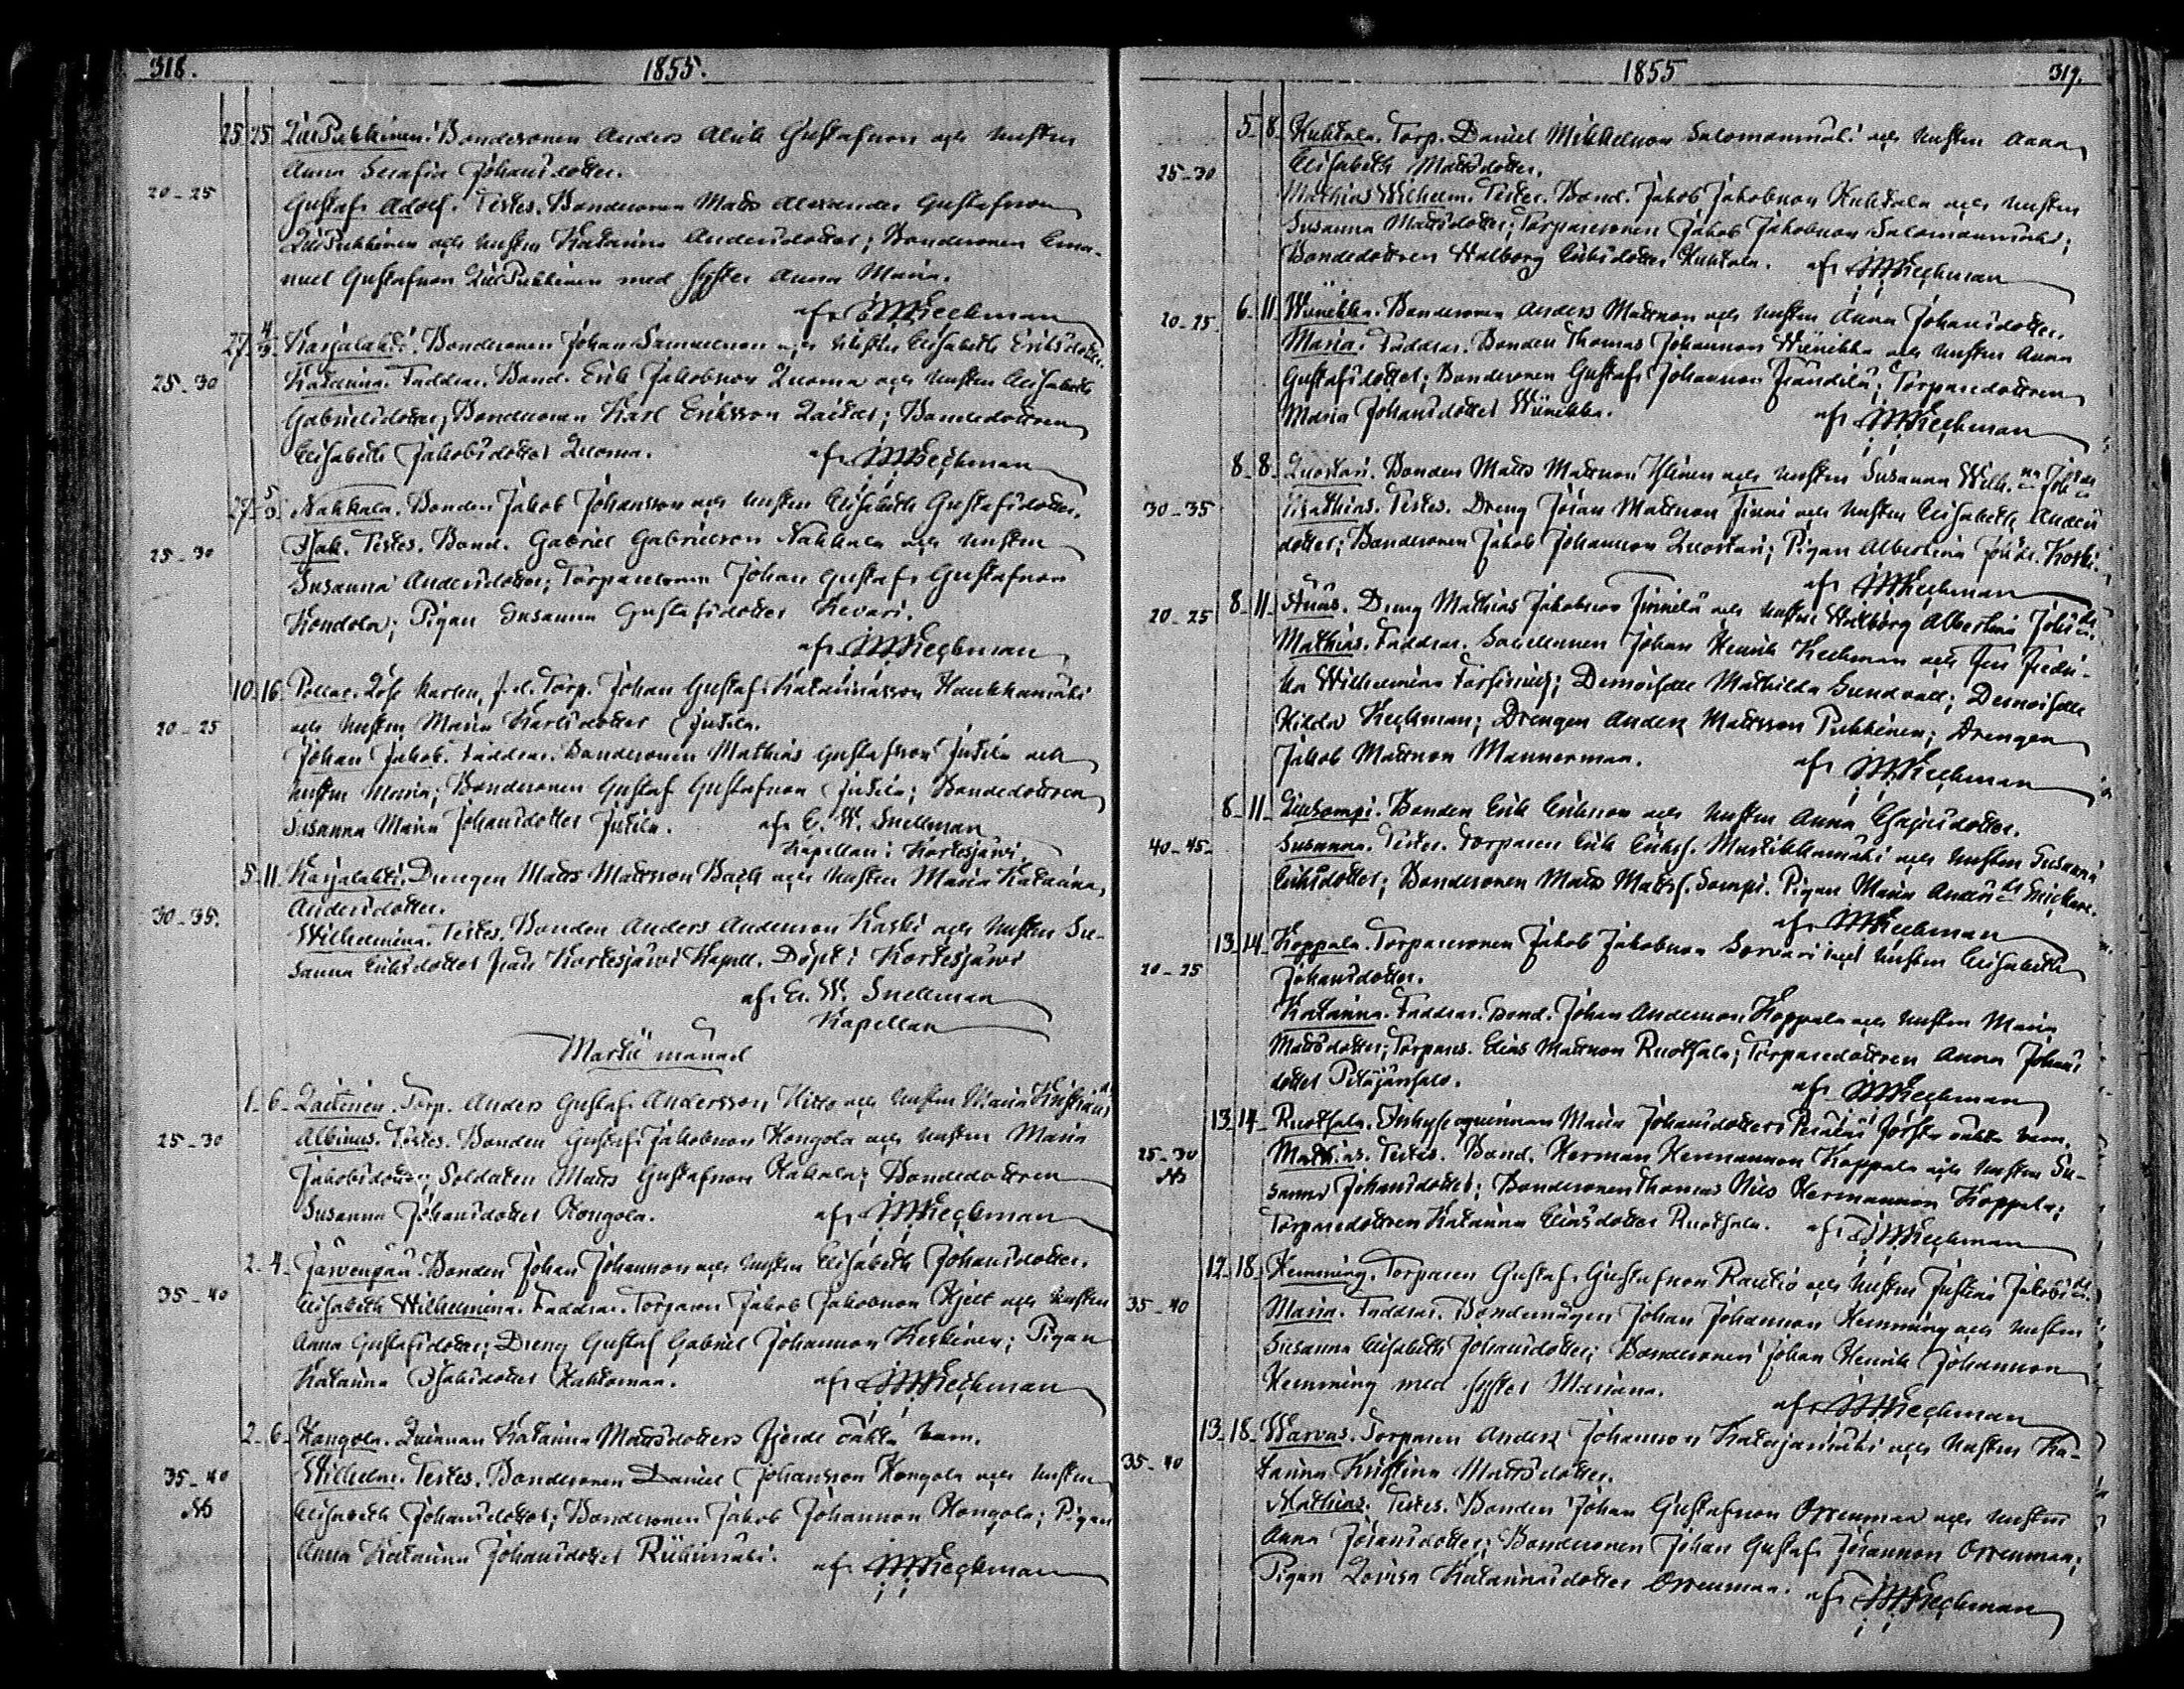 318. 1855.
25 25 LillPukkinen. Bondesonen Anders Alrik Gustafsson och hustru
Anna Serafia Johansdotter.
20-25 Gustaf Adolf. Testes. Bondesonen Matts Alexander Gustafsson
LillPukkinen och hustru Katarina Andersdotter; Bondesonen Ema-
nuel Gustafsson LillPukkinen med syster Anna Maria.
af JMKeckman
27 4/3 Karjalahti. Bondesonen Johan Samuelsson och hustru Elisabeth Eriksdotter.
25-30 Katarina. Faddrar. Bond. Erik Jakobsson Luoma och hustru Elisabeth
Gabrielsdotter; Bondesonen Karl Eriksson; Bondedottren
Elisabeth Jakobsdotter Luoma. af JMKeckman
27 5/3 Nahkala. Bonden Jakob Johansson och hustru Elisabeth Gustafsdotter.
25-30 Isak. Testes. Bond. Gabriel Gabrielsson Nahkala och hustru
Susanna Andersdotter; Torparsonen Johan Gustaf Gustafsson
Kondola; Pigan Susanna Gustafsdotter Kevari.
af JMKeckman
10 16 Torp. Johan Gustaf Katarinasson Haukkamäki
20-25 och hustru Maria Karlsdotter Jutila.
Johan Jakob. Faddrar. Bondesonen Mathias Gustafsson Jutila och
hustru Maria; Bondesonen Gustaf Gustafsson Jutila; Bondedottren
Susanna Maria Johansdotter Jutila. af E. W. Snellman
Kapellan i Kortesjärvi
5 11 Karjalahti. Drengen Matts Mattsson Back och hustru Maria Katarina
Andersdotter.
30-35. Wilhelmina. Testes. Bonden Anders Andersson Kaski och hustru Su-
sanna Eriksdotter från Kortesjärwi Kapell. Döpt i Kortesjärwi
af E. W. Snellman
Kapellan
Martii månad
1 6 Laitinen. Torp. Anders Gustaf Andersson Hitto och hustru Maria
25-30 Albinus. Testes. Bonden Gustaf Jakobsson Kongola och hustru Maria
Jakobsdotter; Soldaten Matts Gustafsson Kakola; Bondedottren
Susanna Johansdotter Kongola. af JMKeckman
2 4 Järvenpää. Bonden Johan Johansson och hustru Elisabeth Johansdotter.
35-40 Elisabeth Wilhelmina. Faddrar. Torparen Jakob Jakobsson Hjelt och hustru
Anna Gustafsdotter; Dreng Gustaf Gabriel Johansson Keskinen; Pigan
Katarina Isaksdotter Kahtamaa. af JMKeckman
2 6 Kongola. Qvinnan Katarina Mattsdotters fjerde oäkta barn.
35-40 Wilhelm. Testes. Bondesonen Daniel Johansson Kongola och hustru
Nb Elisabeth Johansdotter; Bondesonen Jakob Johansson Kongola; Pigan
Anna Katarina Johansdotter Riihimäki. af JMKeckman
1855 319.
5 8 Huhtala. Torp. Daniel Mikkelsson Salomonmäki och hustru Anna
25-30 Elisabeth Mattsdotter.
Mathias Wilhelm. Testes. Bond. Jakob Jakobsson Huhtala och hustru
Susanna Mattsdotter; Torparesonen Jakob Jakobsson Salomonmäki;
Bondedottren Walborg Eriksdotter Huhtala. af JMKeckman
20-25 6 11 Wiinikka. Bondesonen Anders Mattsson och hustru Anna Johansdotter.
Maria. Faddrar. Bonden Thomas Johansson Wiinikka och hustru Anna
Gustafsdotter; Bondesonen Gustaf Johansson; Torparedottren
Maria Johansdotter Wiinikka. af JMKeckman
8 8 Luostari. Bonden Matts Mattsson och hustru Susanna Wilh.
30-35 Mathias. Testes. Dreng Johan Mattsson och hustru Elisabeth Anders
dotter; Bondesonen Jakob Johansson Luostari; Pigan Albertina Koski.
af JMKeckman
20-25 8 11 Ånäs. Dreng Mathias Jakobsson Finnilä och hustru Walborg Albertina Johsdr.
Mathias. Faddrar. Johan Henrik Keckman och Fru Fredri-
ka Wilhelmina Forssman; Demoiselle Mathilda Sundvall; Demoiselle
Hilda Keckman; Drengen Anders Mattsson Pukkinen; Drengen
Jakob Mattsson Mannerman. af JMKeckman
8 11 Lillsompi. Bonden Erik Eriksson och hustru Anna Esajasdotter.
40-45 Susanna. Testes. Torparen Erik Erikss. Mustikkamäki och hustru Susanna
Eriksdotter; Bondesonen Matts Mattss. Sompi. Pigan Maria Andersdr
af JMKeckman
13 14 Koppala. Torparesonen Jakob Jakobsson Sorvari och hustru Elisabeth
20-25 Johansdotter.
Katarina. Faddrar. Bond. Johan Andersson Koppala och hustru Maria
Mattsdotter; Torpares. Elias Mattsson Ruotsala; Torparedottren Anna Johans
dotter Pitäjänsalo. af JMKeckman
13 14 Ruotsala. Inhyseqvinnan Maria Johansdotters första oäkta barn.
25-30 Mathias. Testes. Bond. Herman Hermansson Koppala och hustru Su-
Nb sanna Johansdotter; Bondesonen Thomas Nils Hermansson Koppala;
Torparedottren Katarina Eliasdotter Ruotsala. af JMKeckman
12 18 Hemming. Torparen Gustaf Gustafsson Rautio och hustru Justina Jakobsdr.
35-40 Maria. Faddrar. Bondemågen Johan Johansson Hemming och hustru
Susanna Elisabeth Johansdotter; Bondesonen Johan Henrik Johansson
Hemming med syster Mariana. af JMKeckman
13 18 Warvas. Torparen Anders Johansson Katajamäki och hustru Ka-
35-40 tarina Kristina Mattsdotter.
Mathias. Testes. Bonden Johan Gustafsson Orrenmaa och hustru
Anna Johansdotter; Bondesonen Johan Gustaf Johansson Orrenmaa;
Pigan Lovisa Katarinasdotter Orrenmaa. af JMKeckman